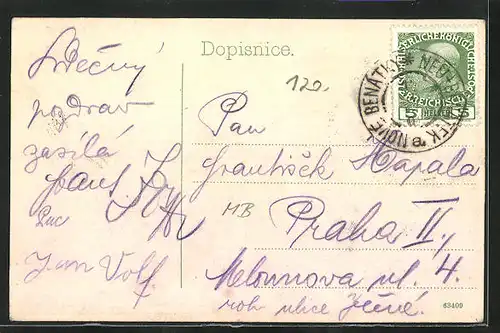 Dopisnice.
120.
Srdečný
pozdrav
zasílá
Jan Volf.
Pan
František Hapala
MB
Praha II.,
ul. 4.
roh ulice Ječné.
KAISERLICHEKÖNIGLICHE
ÖSTERREICHISCHE
5 HELLER 5
NEU-BENATEK * NOVÉ BENÁTKY *
63409